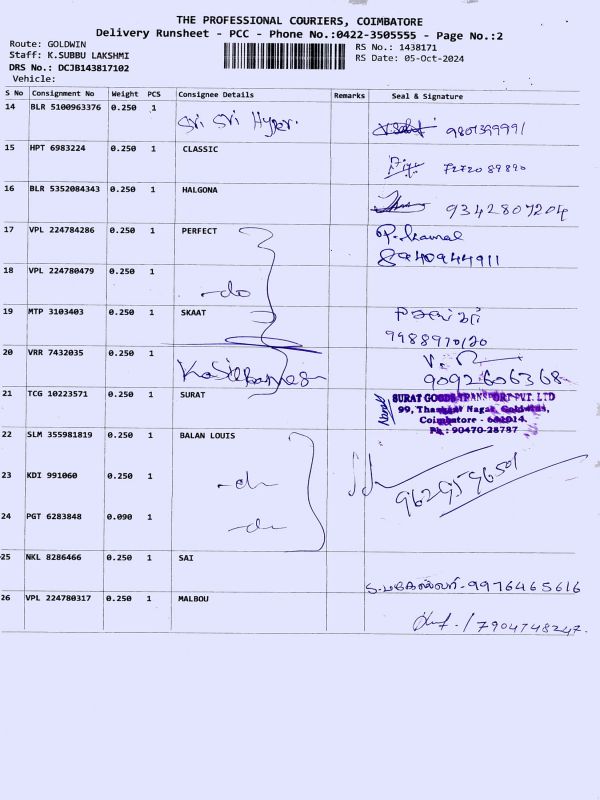 THE PROFESSIONAL COURIERS, COIMBATORE
Delivery Runsheet - PCC - Phone No.:0422-3505555 - Page No.:2
Route: GOLDWIN
Staff: K.SUBBU LAKSHMI
DRS No.: DCJB143817102
Vehicle:
RS No.: 1438171
RS Date: 05-Oct-2024
S No Consignment No Weight PCS Consignee Details Remarks Seal & Signature
14 BLR 5100963376 0.250 1 Sri Sri Hyper.
15 HPT 6983224 0.250 1 CLASSIC
16 BLR 5352084343 0.250 1 HALGONA 9342807204
17 VPL 224784286 0.250 1 PERFECT P. Kamal
8940944911
18 VPL 224780479 0.250 1 -do
19 MTP 3103403 0.250 1 SKAAT
9988970120
20 VRR 7432035 0.250 1
9092606368
21 TCG 10223571 0.250 1 SURAT SURAT GOODS TRANSPORT PVT. LTD
99, Nagar, Goldwins,
Coimbatore - 641014.
Ph : 90470-28787
22 SLM 355981819 0.250 1 BALAN LOUIS
23 KDI 991060 0.250 1 -do 9629596501
24 PGT 6283848 0.090 1 -do
25 NKL 8286466 0.250 1 SAI 9976465616
26 VPL 224780317 0.250 1 MALBOU 7904748247.